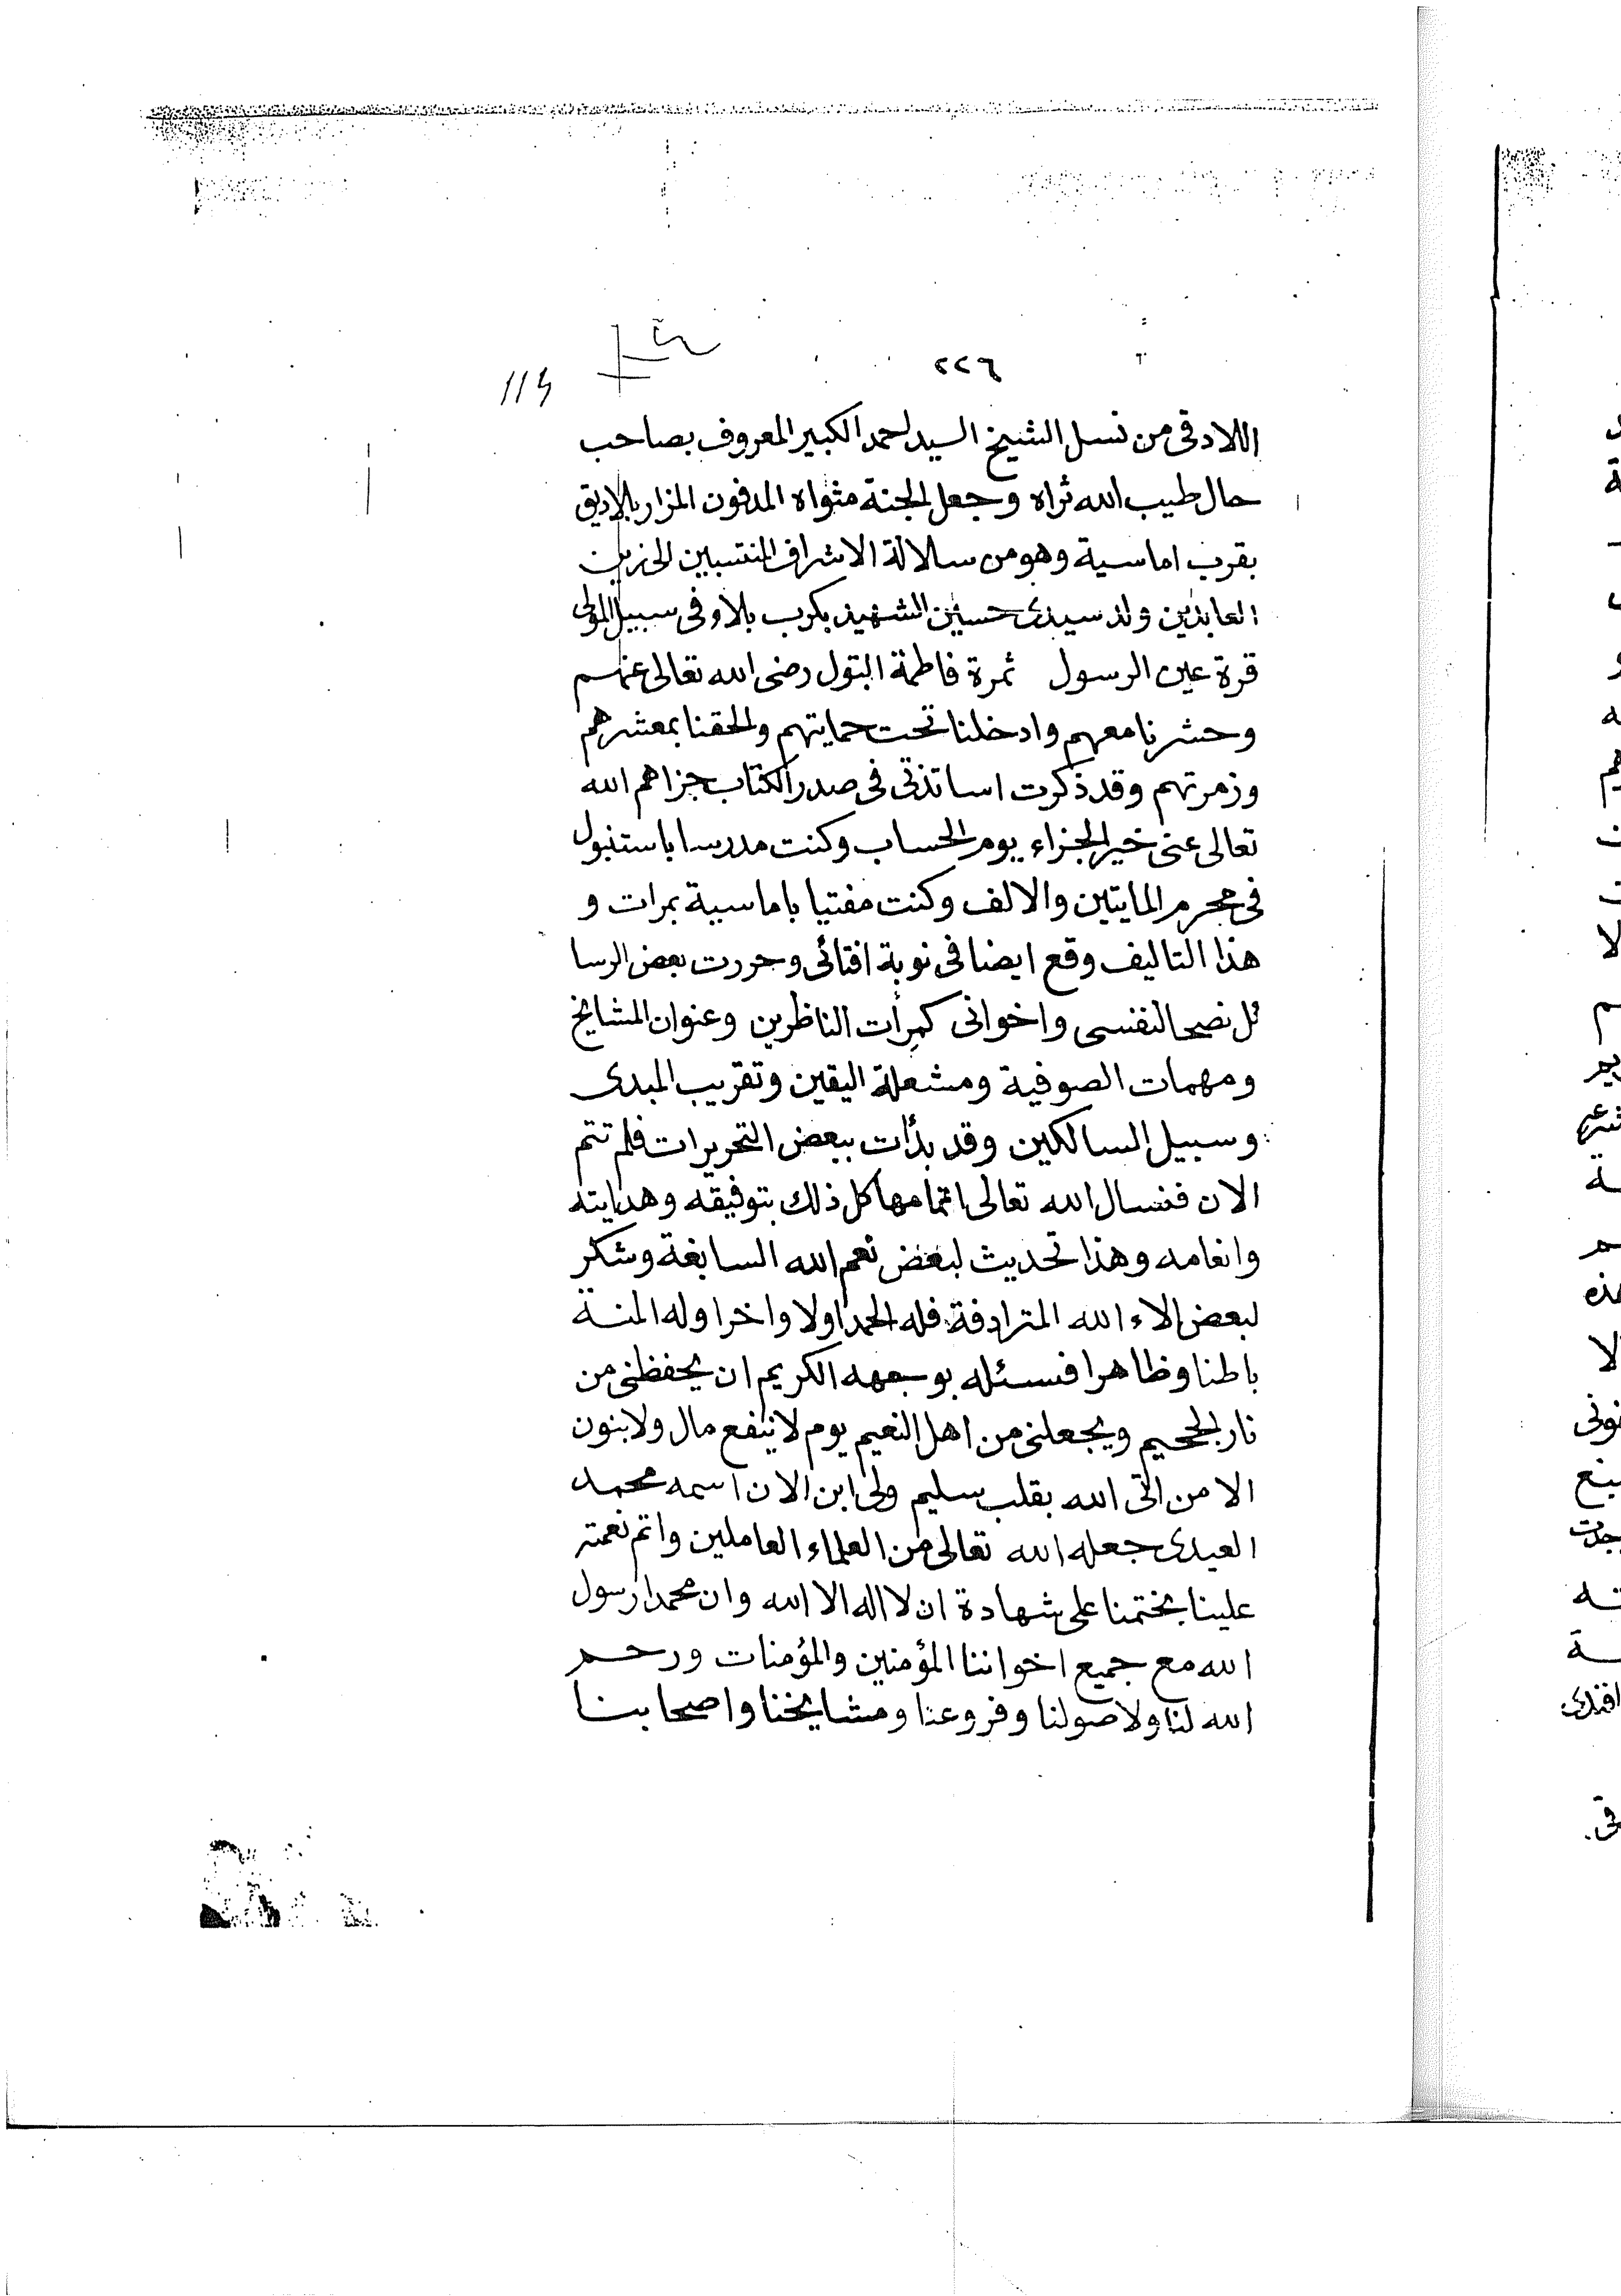 ٢٢٦
اللادقى من نسل الشيخ السيد احمد الكبير المعروف بصاحب
حال طيب الله ثراه وجعل الجنة مثواه المدفون المزار بالاديق
بقرب اماسية وهو من سلالة الاشراف المنتسبين الى زين
العابدين ولد سيدى حسين الشهيد بكرب بلاء فى سبيل المولى
قرة عين الرسول ثمرة فاطمة البتول رضى الله تعالى عنهم
وحشرنا معهم وادخلنا تحت حمايتهم والحقنا بمعشرهم
وزمرتهم وقد ذكرت اساتذتى فى صدر الكتاب جزاهم الله
تعالى عنى خير الجزاء يوم الحساب وكنت مدرسا باستنبول
فى محرم المايتين والالف وكنت مفتيا باماسية بمرات و
هذا التاليف وقع ايضا فى نوبة افتائى وحررت بعض الرسا
ئل نصحا لنفسى واخوانى كمرأت الناظرين وعنوان المشايخ
ومهمات الصوفية ومشعلة اليقين وتقريب المبدى
وسبيل السالكين وقد بدأت ببعض التحريرات فلم تتم
الان فنسال الله تعالى اتمامها كل ذلك بتوفيقه وهدايته
وانعامه وهذا تحديث لبعض نعم الله السابغة وشكر
لبعض الاء الله المترادفة فله الحمد اولا واخرا وله المنة
باطنا وظاهرا فسئله بوجهه الكريم ان يحفظنى من
نار الجحيم ويجعلنى من اهل النعيم يوم لا ينفع مال ولا بنون
الا من اتى الله بقلب سليم ولى ابن الان اسمه محمد
العيدى جعله الله تعالى من العلماء العاملين واتم نعمته
علينا بختمنا على شهادة ان لا اله الا الله وان محمدا رسول
الله مع جميع اخواننا المؤمنين والمؤمنات ورحم
الله لنا ولاصولنا وفروعنا ومشايخنا واصحابنا